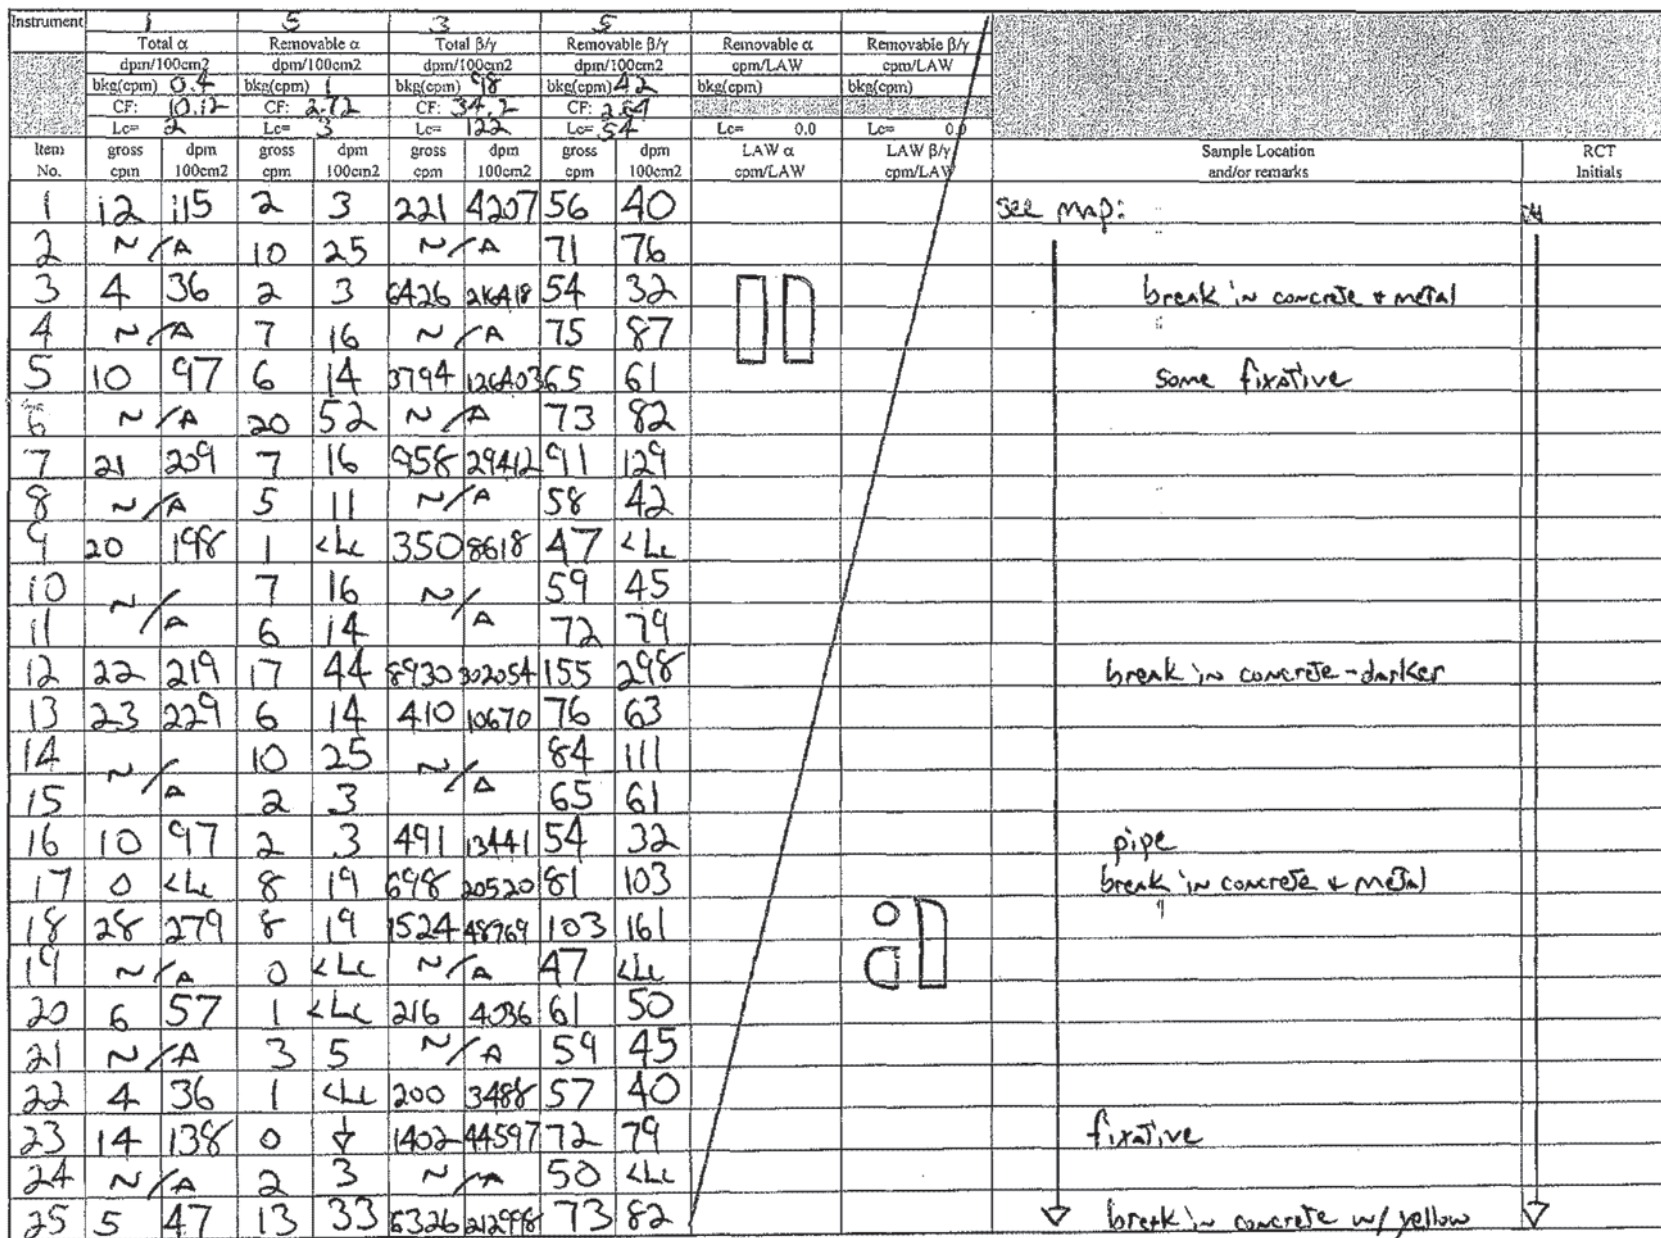 Instrument 1 5 3 5
Total α Removable α Total β/γ Removable β/γ Removable α Removable β/γ
dpm/100cm2 dpm/100cm2 dpm/100cm2 dpm/100cm2 cpm/LAW cpm/LAW
bkg(cpm) 0.4 bkg(cpm) 1 bkg(cpm) 98 bkg(cpm) 42 bkg(cpm) bkg(cpm)
CF: 10.12 CF: 2.72 CF: 34.2 CF: 2.64
Lc= 2 Lc= 3 Lc= 122 Lc= 54 Lc= 0.0 Lc= 0.0
Item gross dpm gross dpm gross dpm gross dpm LAW α LAW β/γ Sample Location RCT
No. cpm 100cm2 cpm 100cm2 cpm 100cm2 cpm 100cm2 cpm/LAW cpm/LAW and/or remarks Initials
1 12 115 2 3 221 4207 56 40 see map:
2 N/A 10 25 N/A 71 76
3 4 36 2 3 6426 216418 54 32 break in concrete + metal
4 N/A 7 16 N/A 75 87 "
5 10 97 6 14 3794 126403 65 61 some fixative
6 N/A 20 52 N/A 73 82
7 21 209 7 16 958 29412 91 129
8 N/A 5 11 N/A 58 42
9 20 198 1 <Lc 350 8618 47 <Lc
10 N/A 7 16 N/A 59 45
11 6 14 72 79
12 22 219 17 44 8930 302054 155 298 break in concrete - darker
13 23 229 6 14 410 10670 76 63
14 N/A 10 25 N/A 84 111
15 2 3 65 61
16 10 97 2 3 491 13441 54 32 pipe
17 0 <Lc 8 19 698 20520 81 103 break in concrete + metal
18 28 279 8 19 1524 48769 103 161 "
19 N/A 0 <Lc N/A 47 <Lc
20 6 57 1 <Lc 216 4036 61 50
21 N/A 3 5 N/A 59 45
22 4 36 1 <Lc 200 3488 57 40
23 14 138 0 ↓ 1402 44597 72 79 fixative
24 N/A 2 3 N/A 50 <Lc
25 5 47 13 33 6326 212998 73 82 break in concrete w/ yellow